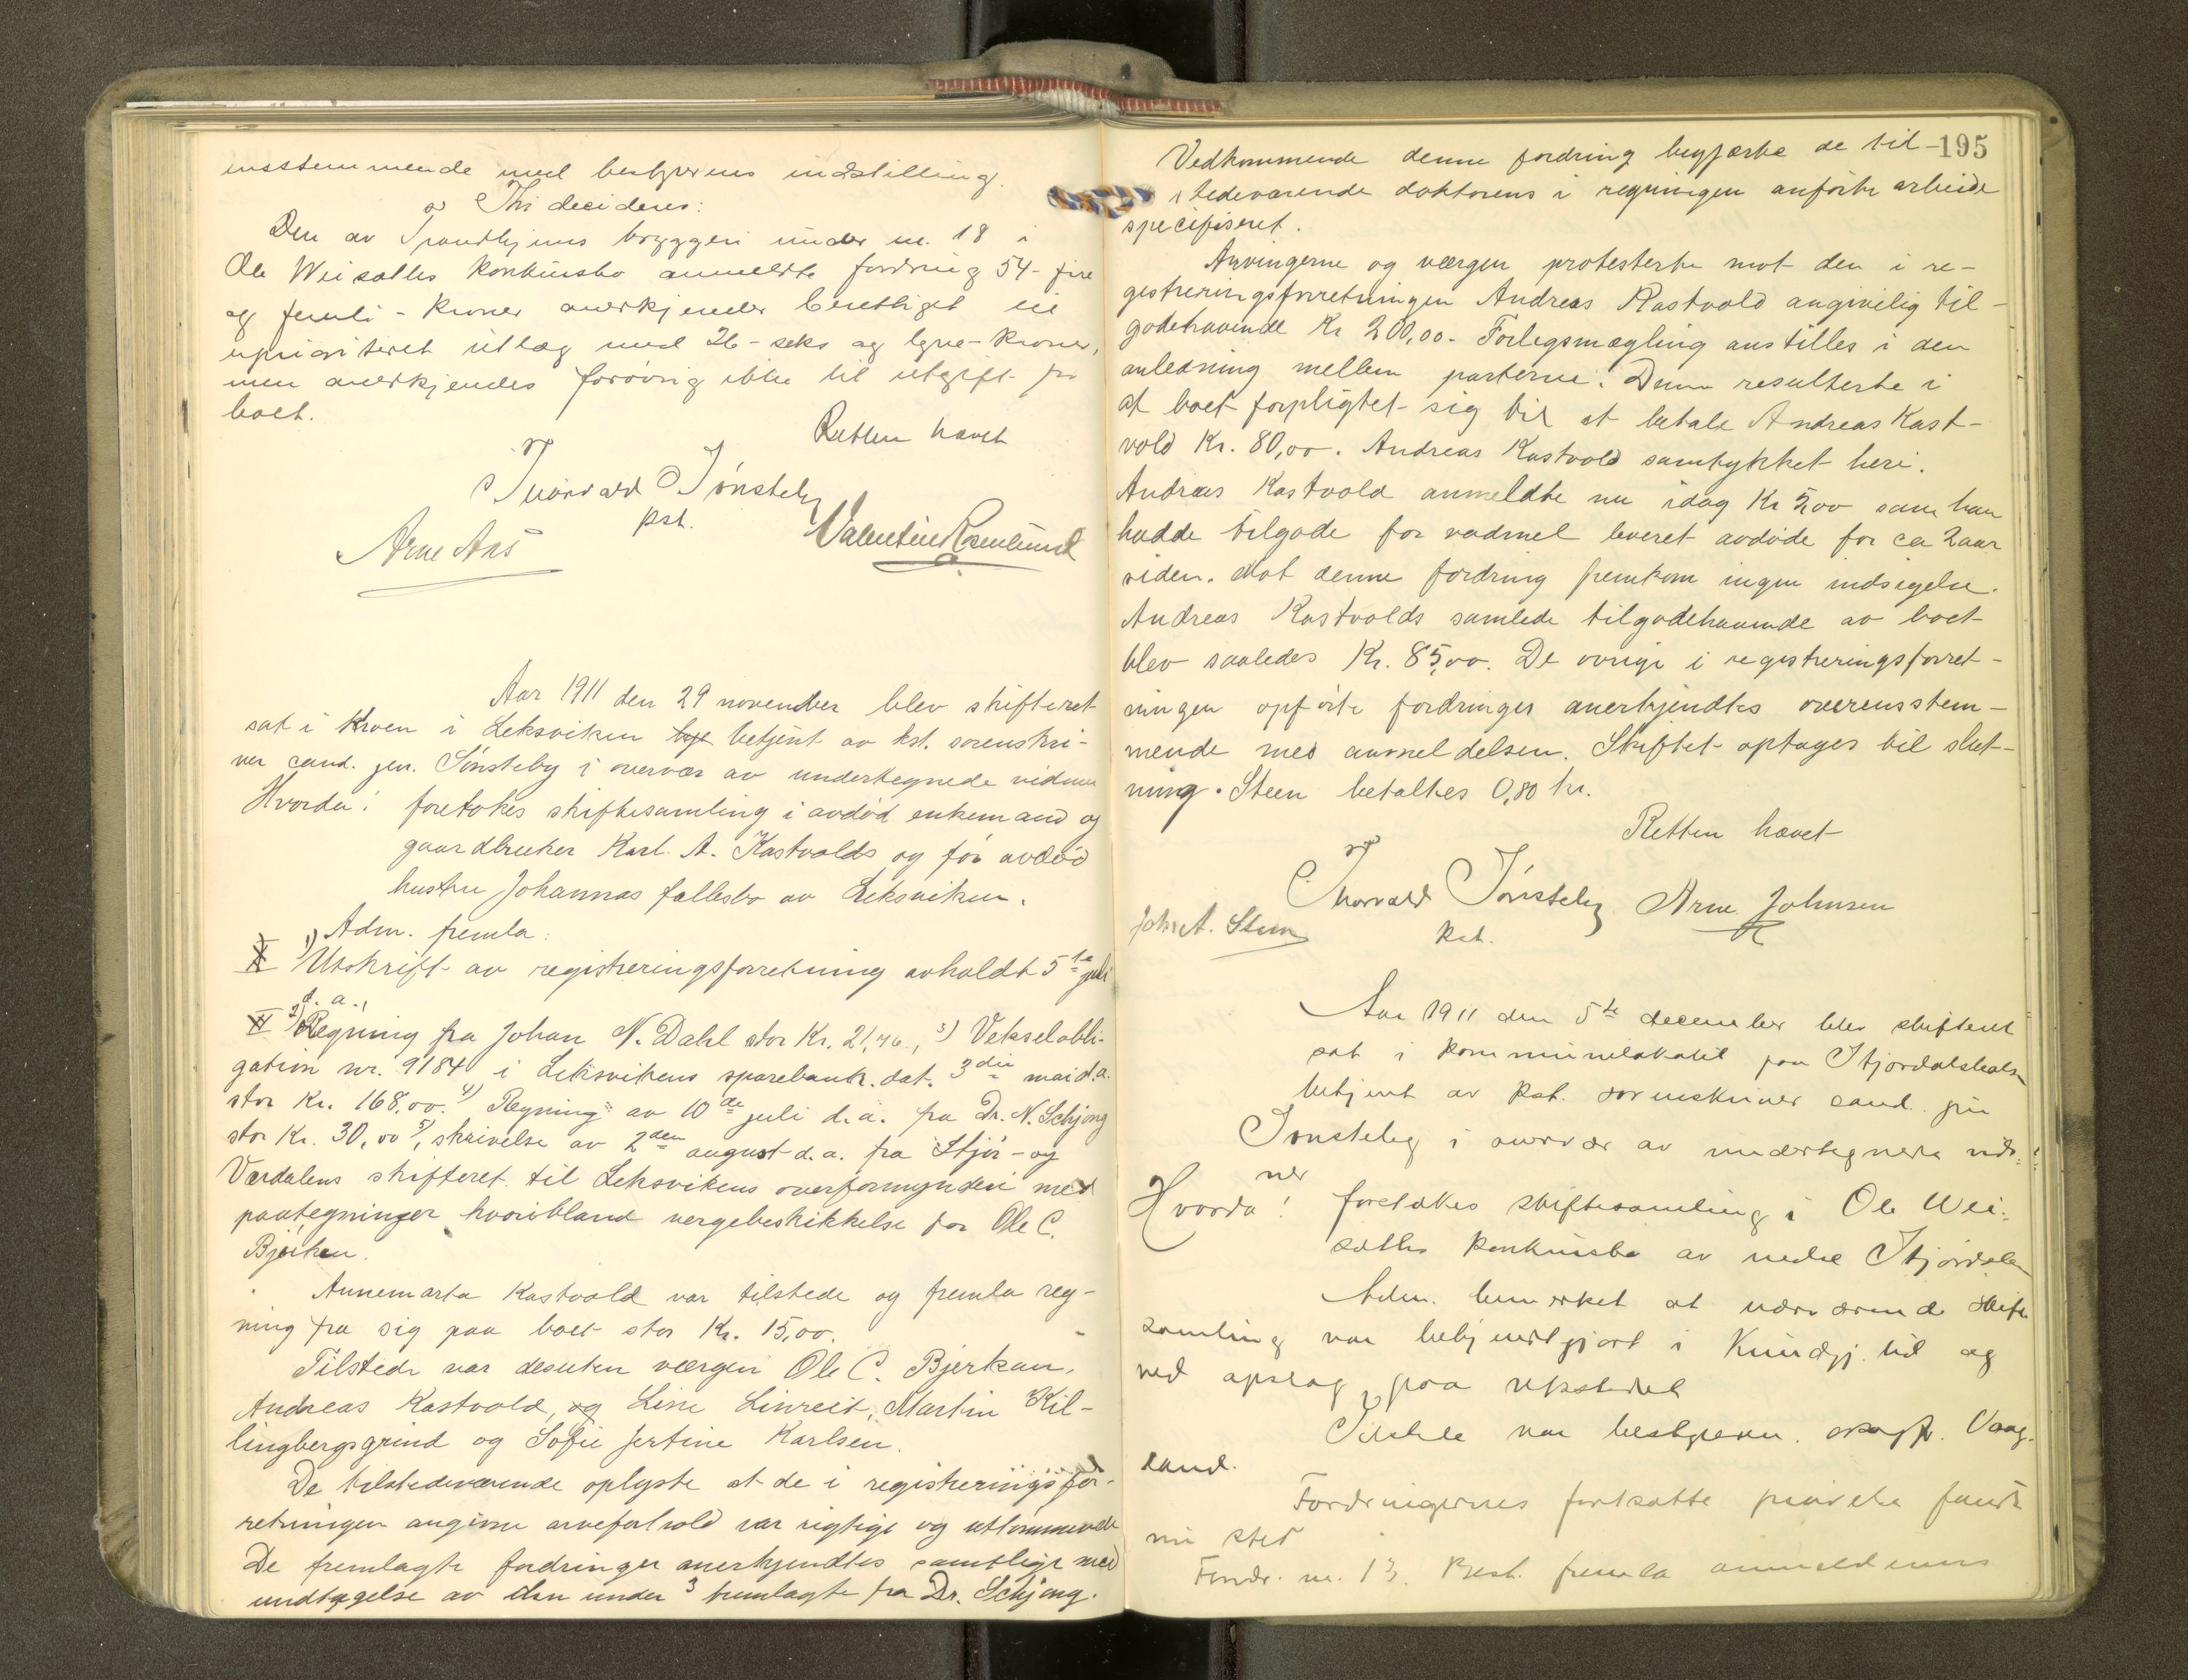 ensstemmende med bestyrerens indstilling.
Thi decideres:
Den av Trondhjems bryggeri under nr. 18 i
Ole Weisæths konkursbo anmeldte fordring 54 - fire
og femti - kroner anerkjendes berettiget til
uprioriteret utlæg med 26 - seks og tyve - kroner,
men anerkjendes forøvrig ikke til utgift for
boet.
Retten hævet
Thorvald Tønsteby
kst.
Arne Aas
Valentin Rosenlund
Aar 1911 den 29 november blev skifteret
sat i Kroen i Leksviken betjent av kst. sorenskri-
ver cand. jur. Tønsteby i overvær av undertegnede vidner
Hvorda: foretokes skiftesamling i avdød enkemand og
gaardbruker Karl A. Kastvolds og før avdød
hustru Johannas fællesbo av Leksviken.
Adm. fremla:
1) Utskrift av registreringsforretning avholdt 5te juli
d. a.,
2) Regning fra Johan N. Dahl stor Kr. 21,46., 3) Vekselobli-
gation nr. 9184 i Leksvikens sparebank. dat. 3die mai d.a.
stor Kr. 168,00. 4) Regning av 10de juli d. a. fra Dr. N. Schjong
stor Kr. 30,00 5), skrivelse av 2den august d. a. fra Stjør- og
Værdalens skifteret til Leksvikens overformynderi med
paategninger hvoriblandt vergebeskikkelse for Ole C.
Bjerkan.
Annemarta Kastvold var tilstede og fremla reg-
ning fra sig paa boet stor Kr. 15,00.
Tilstede var desuten værgen Ole C. Bjerkan,
Andreas Kastvold, og Line Linreit, Martin Kil-
lingbergsgrind og Sofie Jertine Karlsen.
De tilstedeværende oplyste at de i registreringsfor-
retningen angivne arveforhold var rigtige og uttømmende
De fremlagte fordringer anerkjendtes samtlige med
undtagelse av den under 3 fremlagte fra Dr. Schjong.
195
Vedkommende denne fordring begjærte de til-
stedeværende doktorens i regningen anførte arbeide
specifiseret.
Arvingerne og værgen protesterte mot den i re-
gistreringsforretningen Andreas Kastvold angivelig til-
godehavende Kr 200,00. Forliksmægling anstilles i den
anledning mellem parterne. Denne resulterte i
at boet forpligtet sig til at betale Andreas Kast-
vold Kr. 80,00. Andreas Kastvold samtykket heri.
Andreas Kastvold anmeldte nu idag Kr 5,00 som han
hadde tilgode for vadmel leveret avdøde for ca 2 aar
siden. Mot denne fordring fremkom ingen indsigelse.
Andreas Kastvolds samlede tilgodehavende av boet
blev saaledes Kr. 85,00. De øvrige i registreringsforret-
ningen opførte fordringer anerkjendtes overensstem-
mende med anmeldelsen. Skiftet optages til slut-
ning. Steen betaltes 0,80 kr.
Retten hævet
Thorvald Tønsteby Arne Johnsen
kst.
Joh. A. Steen
Aar 1911 den 5te december blev skifteret
sat i kommunelokalet paa Stjørdalshalsen
betjent av kst. sorenskriver cand. jur
Tønsteby i overvær av undertegnede vid-
ner
Hvorda: foretokes skiftesamling i Ole Wei-
sæths konkursbo av nedre Stjørdalen
Adm. bemerket at nærværende skifte
samling var bekjendtgjort i Kundgj. tid og
ved opslag paa rets­stedet
Tilstede var bestyreren, Vaag-
land.
Fordringernes fortsatte prøvelse fandt
nu sted
Fordr. nr. 13. Best. fremla anmelderens